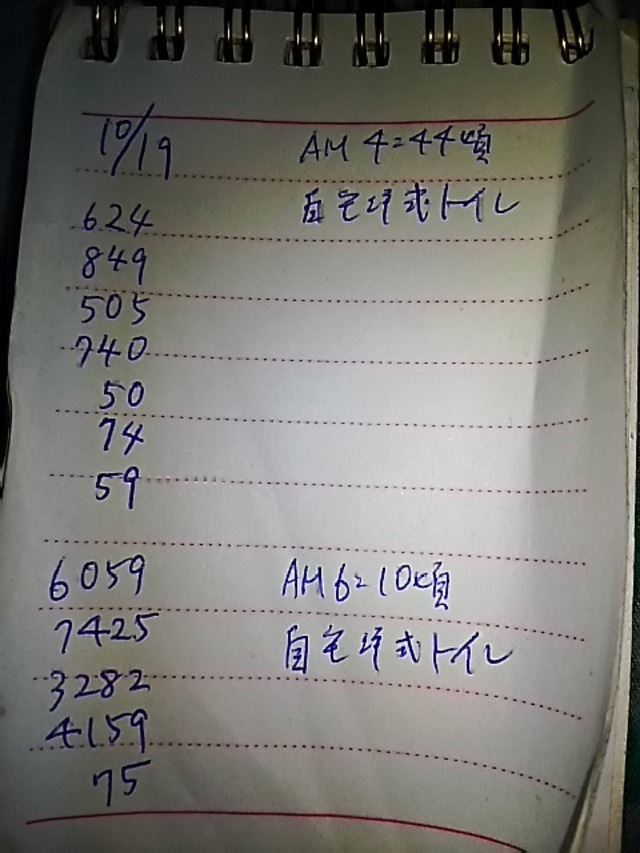 10/19 AM 4:44頃
624 自宅洋式トイレ
849
505
740
50
74
59
6059 AM 6:10頃
7425 自宅洋式トイレ
3282
4159
75